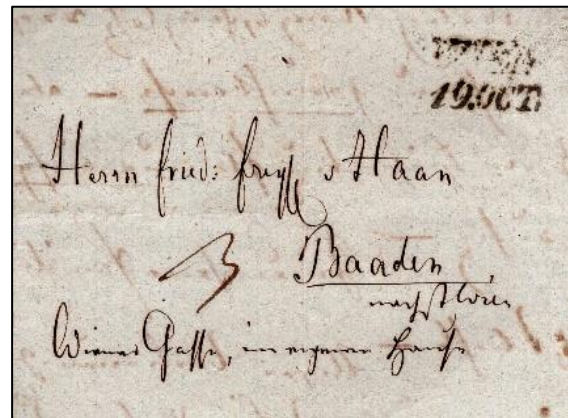 WIEN
19.OCT.
Herrn Fried: Freyh v Haan
3
Baaden
nächst Wien
Wiener Gasse, im eigenen Hause